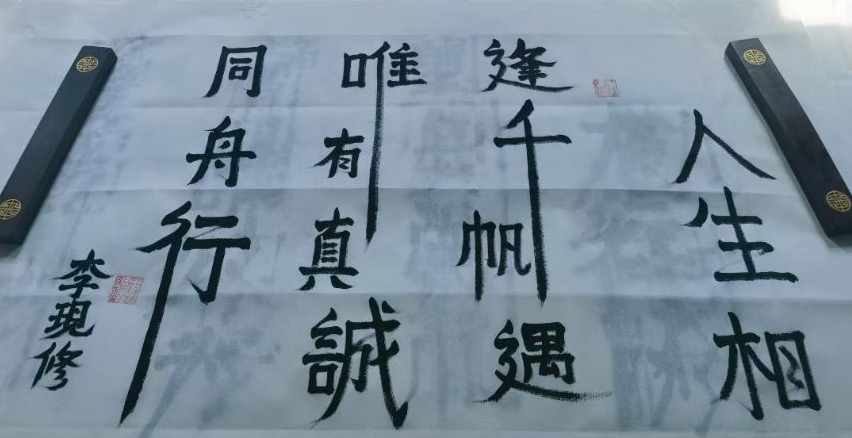 人生相
逢千帆遇
唯有真誠
同舟行
李現修